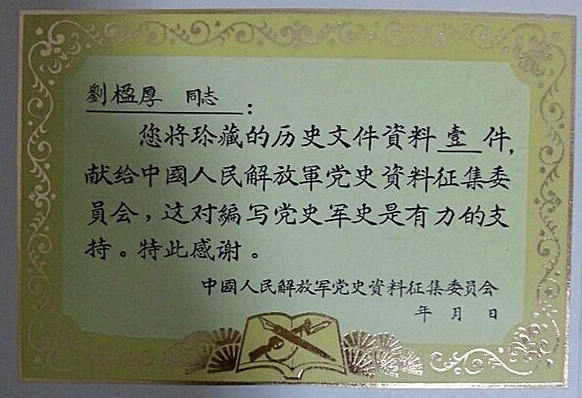 劉楹厚 同志：
您将珍藏的历史文件資料壹件，
献给中國人民解放軍党史資料征集委
員会，这对编写党史军史是有力的支
持。特此感谢。
中國人民解放军党史資料征集委员会
年 月 日